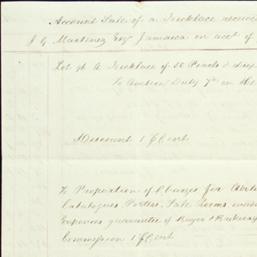 Account Sale of a Necklace receiv
J G Martinez Esqr Jamaica on acct of
Lot 96 A Necklace of 50 Pearls & Dia
To Auction Duty 7d in the
Discount 1 ⅌ Cent
To Proportion of Charges for
Catalogues, Porter, Sale Rooms
Expences guarantee of Buyer &
Commission 1 ⅌ Cent